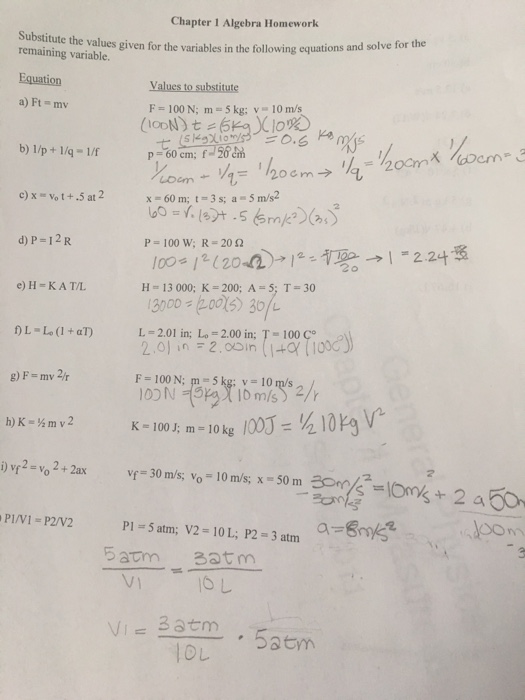 Chapter 1 Algebra Homework
Substitute the values given for the variables in the following equations and solve for the
remaining variable.
Equation Values to substitute
a) Ft = mv F = 100 N; m = 5 kg; v = 10 m/s
(100N) t = (5kg)(10m/s)
t (5kg)(10m/s) = 0.5 kg m/s
b) 1/p + 1/q = 1/f p = 60 cm; f = 20 cm
1/60cm - 1/q = 1/20cm → 1/q = 1/20cm x 1/60cm = 3
c) x = v₀ t + .5 at 2 x = 60 m; t = 3 s; a = 5 m/s2
60 = v. (3)+ .5 (5m/s²)(3s)²
d) P = I 2 R P = 100 W; R = 20 Ω
100 = I² (20Ω) → I² = √100/20 → I = 2.24
e) H = K A T/L H = 13 000; K = 200; A = 5; T = 30
13000 = (200)(5) 30/L
f) L = L₀ (1 + αT) L = 2.01 in; L₀ = 2.00 in; T = 100 C°
2.01 in = 2.00in (1+α (100C°))
g) F = mv 2/r F = 100 N; m = 5 kg; v = 10 m/s
100N = (5kg)(10m/s) 2/r
h) K = ½ m v 2 K = 100 J; m = 10 kg 100J = ½ 10kg V²
i) vf 2 = v₀ 2 + 2ax vf = 30 m/s; v₀ = 10 m/s; x = 50 m 30m/s² = 10m/s² + 2 a 50m
- 30m/s² 100m
P1/V1 = P2/V2 P1 = 5 atm; V2 = 10 L; P2 = 3 atm a = 8m/s²
5atm/V1 = 3atm/10L
V1 = 3atm/10L · 5atm